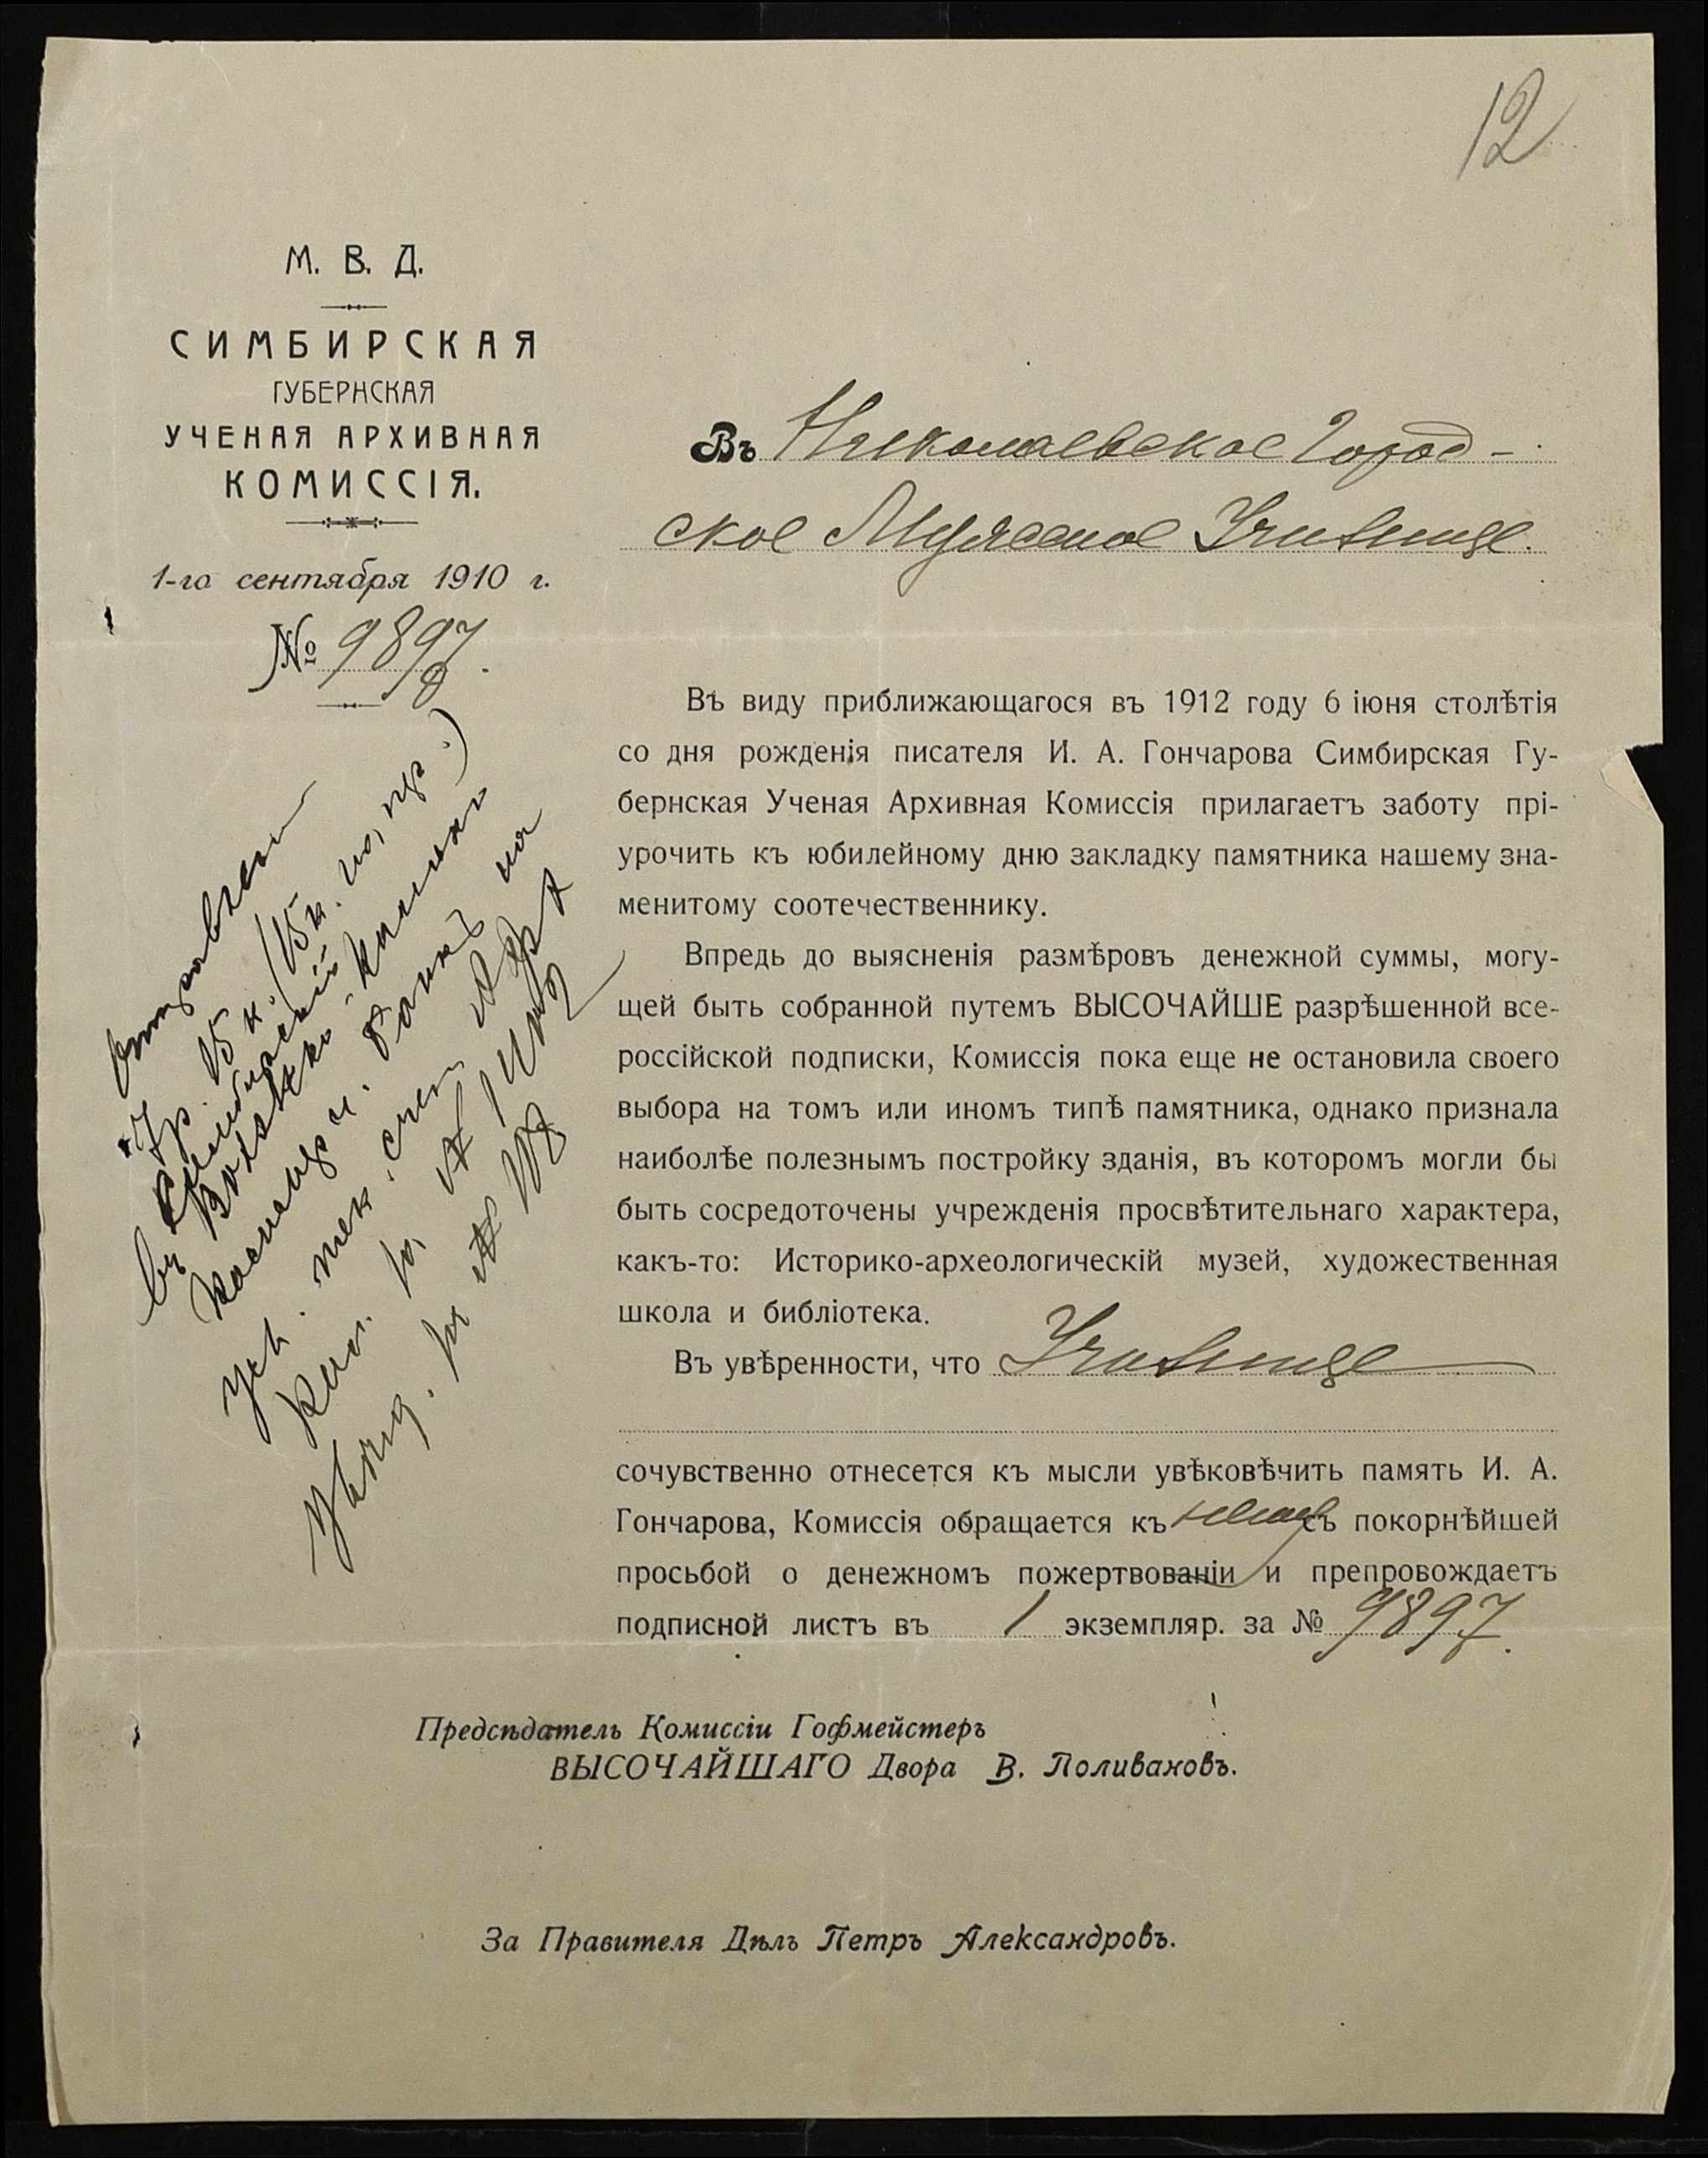 12
М. В. Д.
СИМБИРСКАЯ
ГУБЕРНСКАЯ
УЧЕНАЯ АРХИВНАЯ
КОМИССІЯ.
1-го сентября 1910 г.
№ 9897.
Въ Николаевское Город-
ское Мужское Училище.
Въ виду приближающагося въ 1912 году 6 іюня столѣтія
со дня рожденія писателя И. А. Гончарова Симбирская Гу-
бернская Ученая Архивная Комиссія прилагаетъ заботу прі-
урочить къ юбилейному дню закладку памятника нашему зна-
менитому соотечественнику.
Впредь до выясненія размѣровъ денежной суммы, могу-
щей быть собранной путемъ ВЫСОЧАЙШЕ разрѣшенной все-
россійской подписки, Комиссія пока еще не остановила своего
выбора на томъ или иномъ типѣ памятника, однако признала
наиболѣе полезнымъ постройку зданія, въ которомъ могли бы
быть сосредоточены учрежденія просвѣтительнаго характера,
какъ-то: Историко-археологическій музей, художественная
школа и библіотека.
Въ увѣренности, что Училище
сочувственно отнесется къ мысли увѣковѣчить память И. А.
Гончарова, Комиссія обращается къ нему съ покорнѣйшей
просьбой о денежномъ пожертвованіи и препровождаетъ
подписной листъ въ 1 экземпляр. за № 9897.
Предсѣдатель Комиссіи Гофмейстеръ
ВЫСОЧАЙШАГО Двора В. Поливановъ.
За Правителя Дѣлъ Петръ Александровъ.
7 р. 15 к. (15 к.
въ Симбирскій
Волжско-Камскій
банкъ на
тек. счет